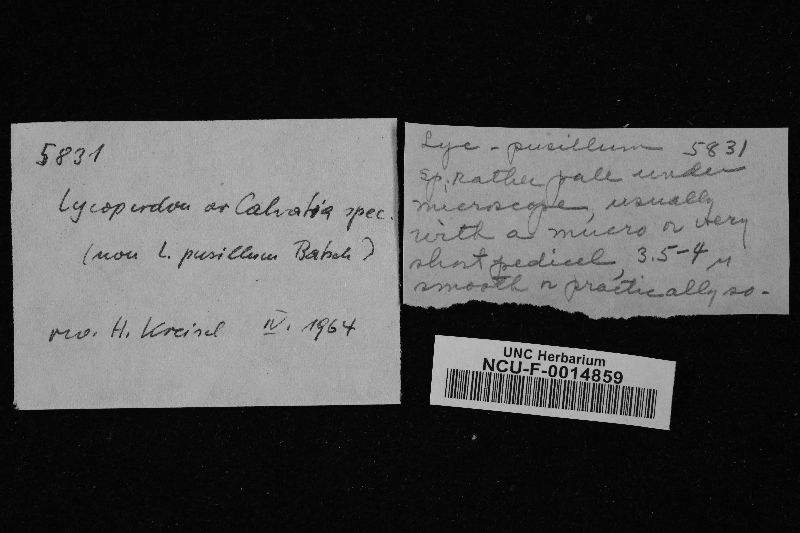 5831
Lycoperdon or Calvatia spec.
(non L. pusillum Batsch)
rev. H. Kreisel IV. 1964
Lyc - pusillum 5831
sp. rather pale under
microscope, usually
with a mucro or very
short pedicel, 3.5-4 µ
smooth or practically so-
UNC Herbarium
NCU-F-0014859